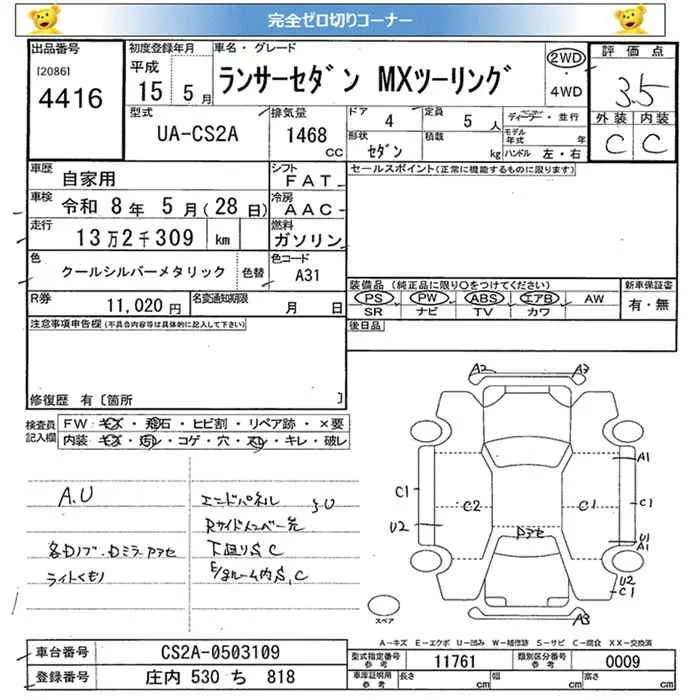 完全ゼロ切りコーナー
出品番号 [2086] 4416
初度登録年月 平成 15 5月
車名・グレード ランサーセダン MXツーリング
2WD・4WD
評価点 3.5
外装 内装
C C
型式 UA-CS2A
排気量 1468 CC
ドア 4
定員 5 人
ディーラー・並行
形状 セダン
積載 kg
モデル年式 年
ハンドル 左・右
車歴 自家用
シフト FAT
セールスポイント(正常に機能するものに限ります)
車検 令和 8年 5月(28日)
冷房 AAC
走行 13万2千309 km
燃料 ガソリン
色 クールシルバーメタリック 色替
色コード A31
装備品(純正品に限り〇をつけてください)
新車保証書 有・無
PS PW ABS エアB AW
SR ナビ TV カワ
R券 11,020円
名変通知期限 月 日
後日品
注意事項申告欄(不具合内容等は具体的に記入して下さい)
修復歴 有〔箇所 〕
検査員記入欄
FW キズ・飛石・ヒビ割・リペア跡・×要
内装 キズ・汚レ・コゲ・穴・スレ・キレ・破レ
A.U
エンドパネル
U
Rサイドメンバー先
各Dノブ・Dミラーアセ
下廻りS,C
ライトくもり
E/gルーム内S,C
A2 A2
A1
C1 C2 C1 C1
U2
U1
A1
U2
C1
A3
スペア
A-キズ E-エクボ U-凹み W-補修跡 S-サビ C-腐食 XX-交換済
車台番号 CS2A-0503109
型式指定番号 参考 11761
類別区分番号 参考 0009
登録番号 庄内 530 ち 818
車庫証明用 参考 長さ cm 幅 cm 高さ cm